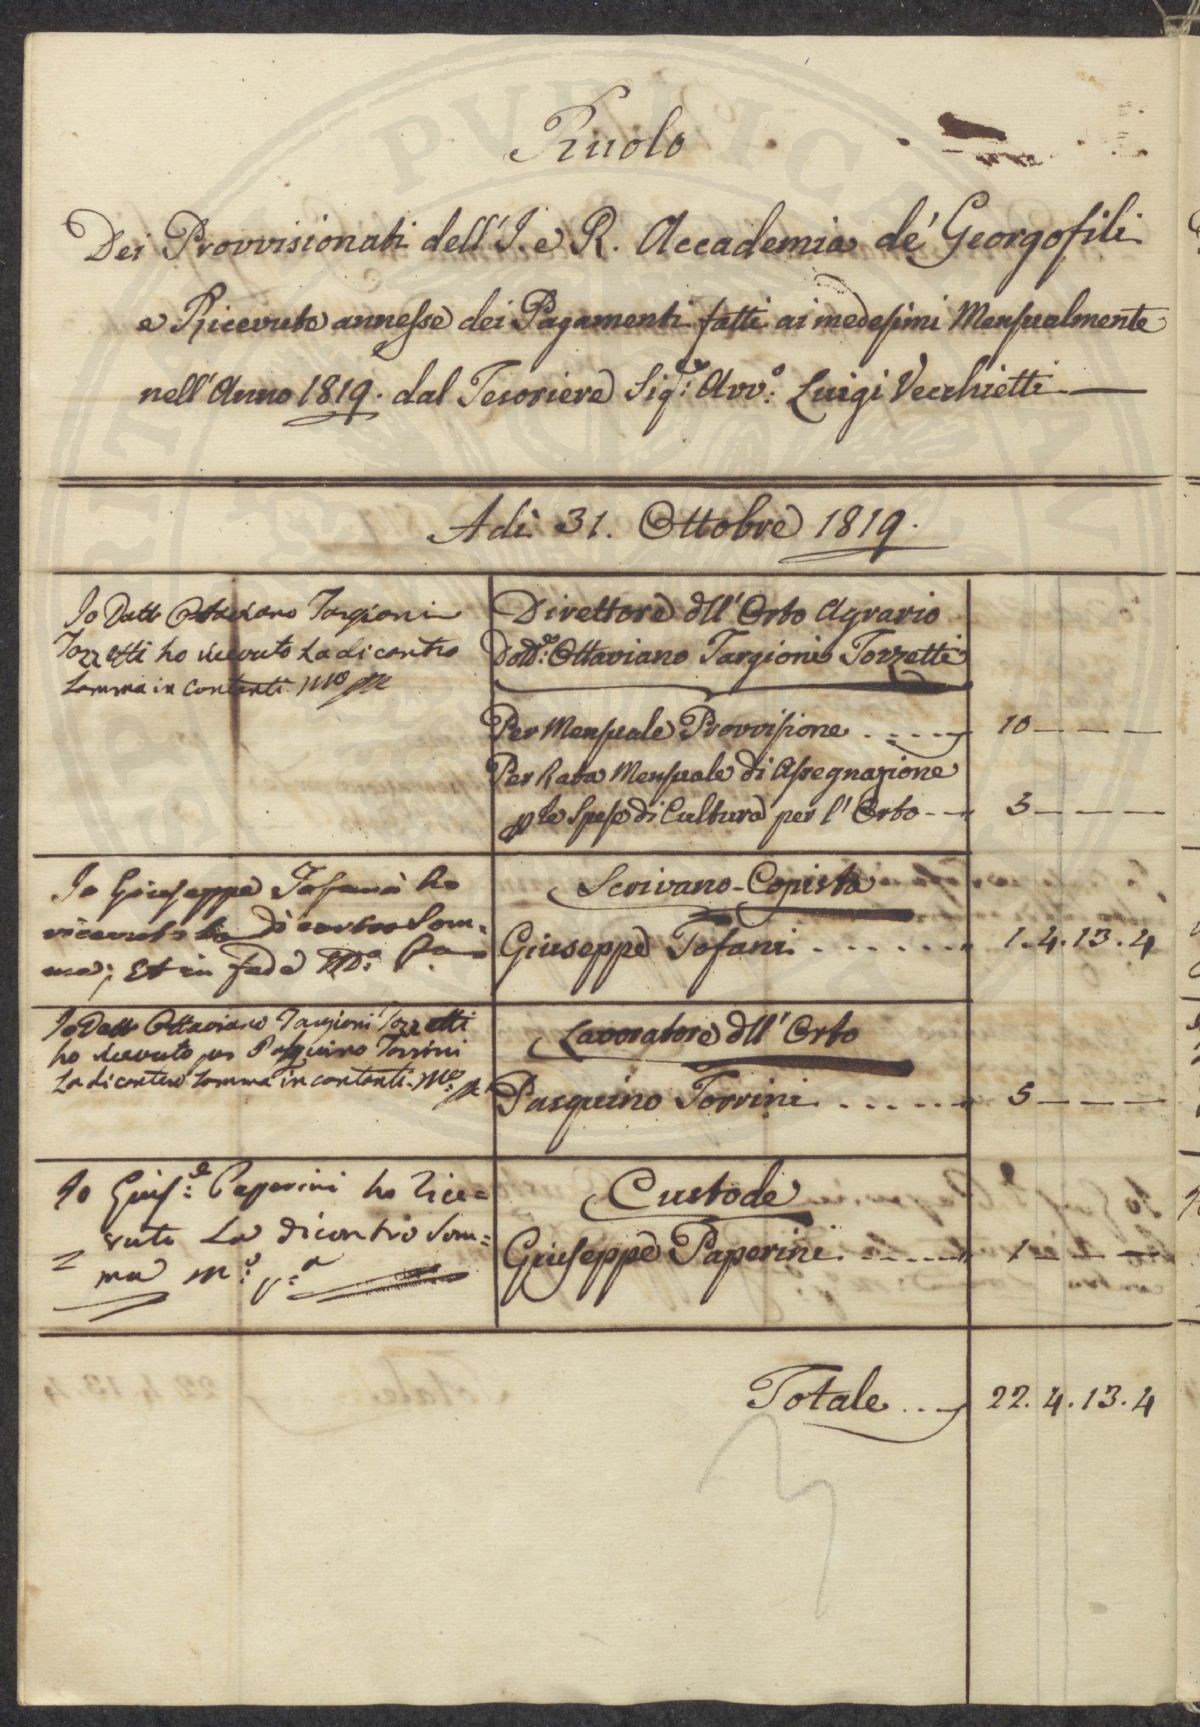 Ruolo
Dei Provvisionati dell' I. e R. Accademia de' Georgofili
e Ricevute annesse dei Pagamenti fatti ai medesimi Mensualmente
nell' Anno 1819. dal Tesoriere Sigr. Avvo: Luigi Vecchietti
Adi 31. Ottobre 1819.
Io Dott Ottaviano Targioni
Tozzetti ho ricevuto La di contro
Somma in Contanti Mo
Direttore dll' Orto Agrario
Dotte: Ottaviano Targioni Tozzetti
Per Mensuale Provvisione . . . . 10 — — —
Per Rata Mensuale di Assegnazione
p le Spese di Cultura per l' Orto - - 5 — — —
Io Giuseppe Tofani ho
ricevuto la di contro Som-
ma; Et in fede
Scrivano-Copista
Giuseppe Tofani . . . . . . . 1. 4. 13. 4
Io Dott Ottaviano Targioni Tozzetti
ho ricevuto per Pasquino Torrini
La di contro Somma in contanti. Mo
Lavoratore dll' Orto
Pasquino Torrini . . . . . . 5 — — —
Io Giuse: Paperini ho Rice=
vuto La dicontro Som=
ma mo: pa:
Custode
Giuseppe Paperini . . . . . 1 — — —
Totale . . . 22. 4. 13. 4